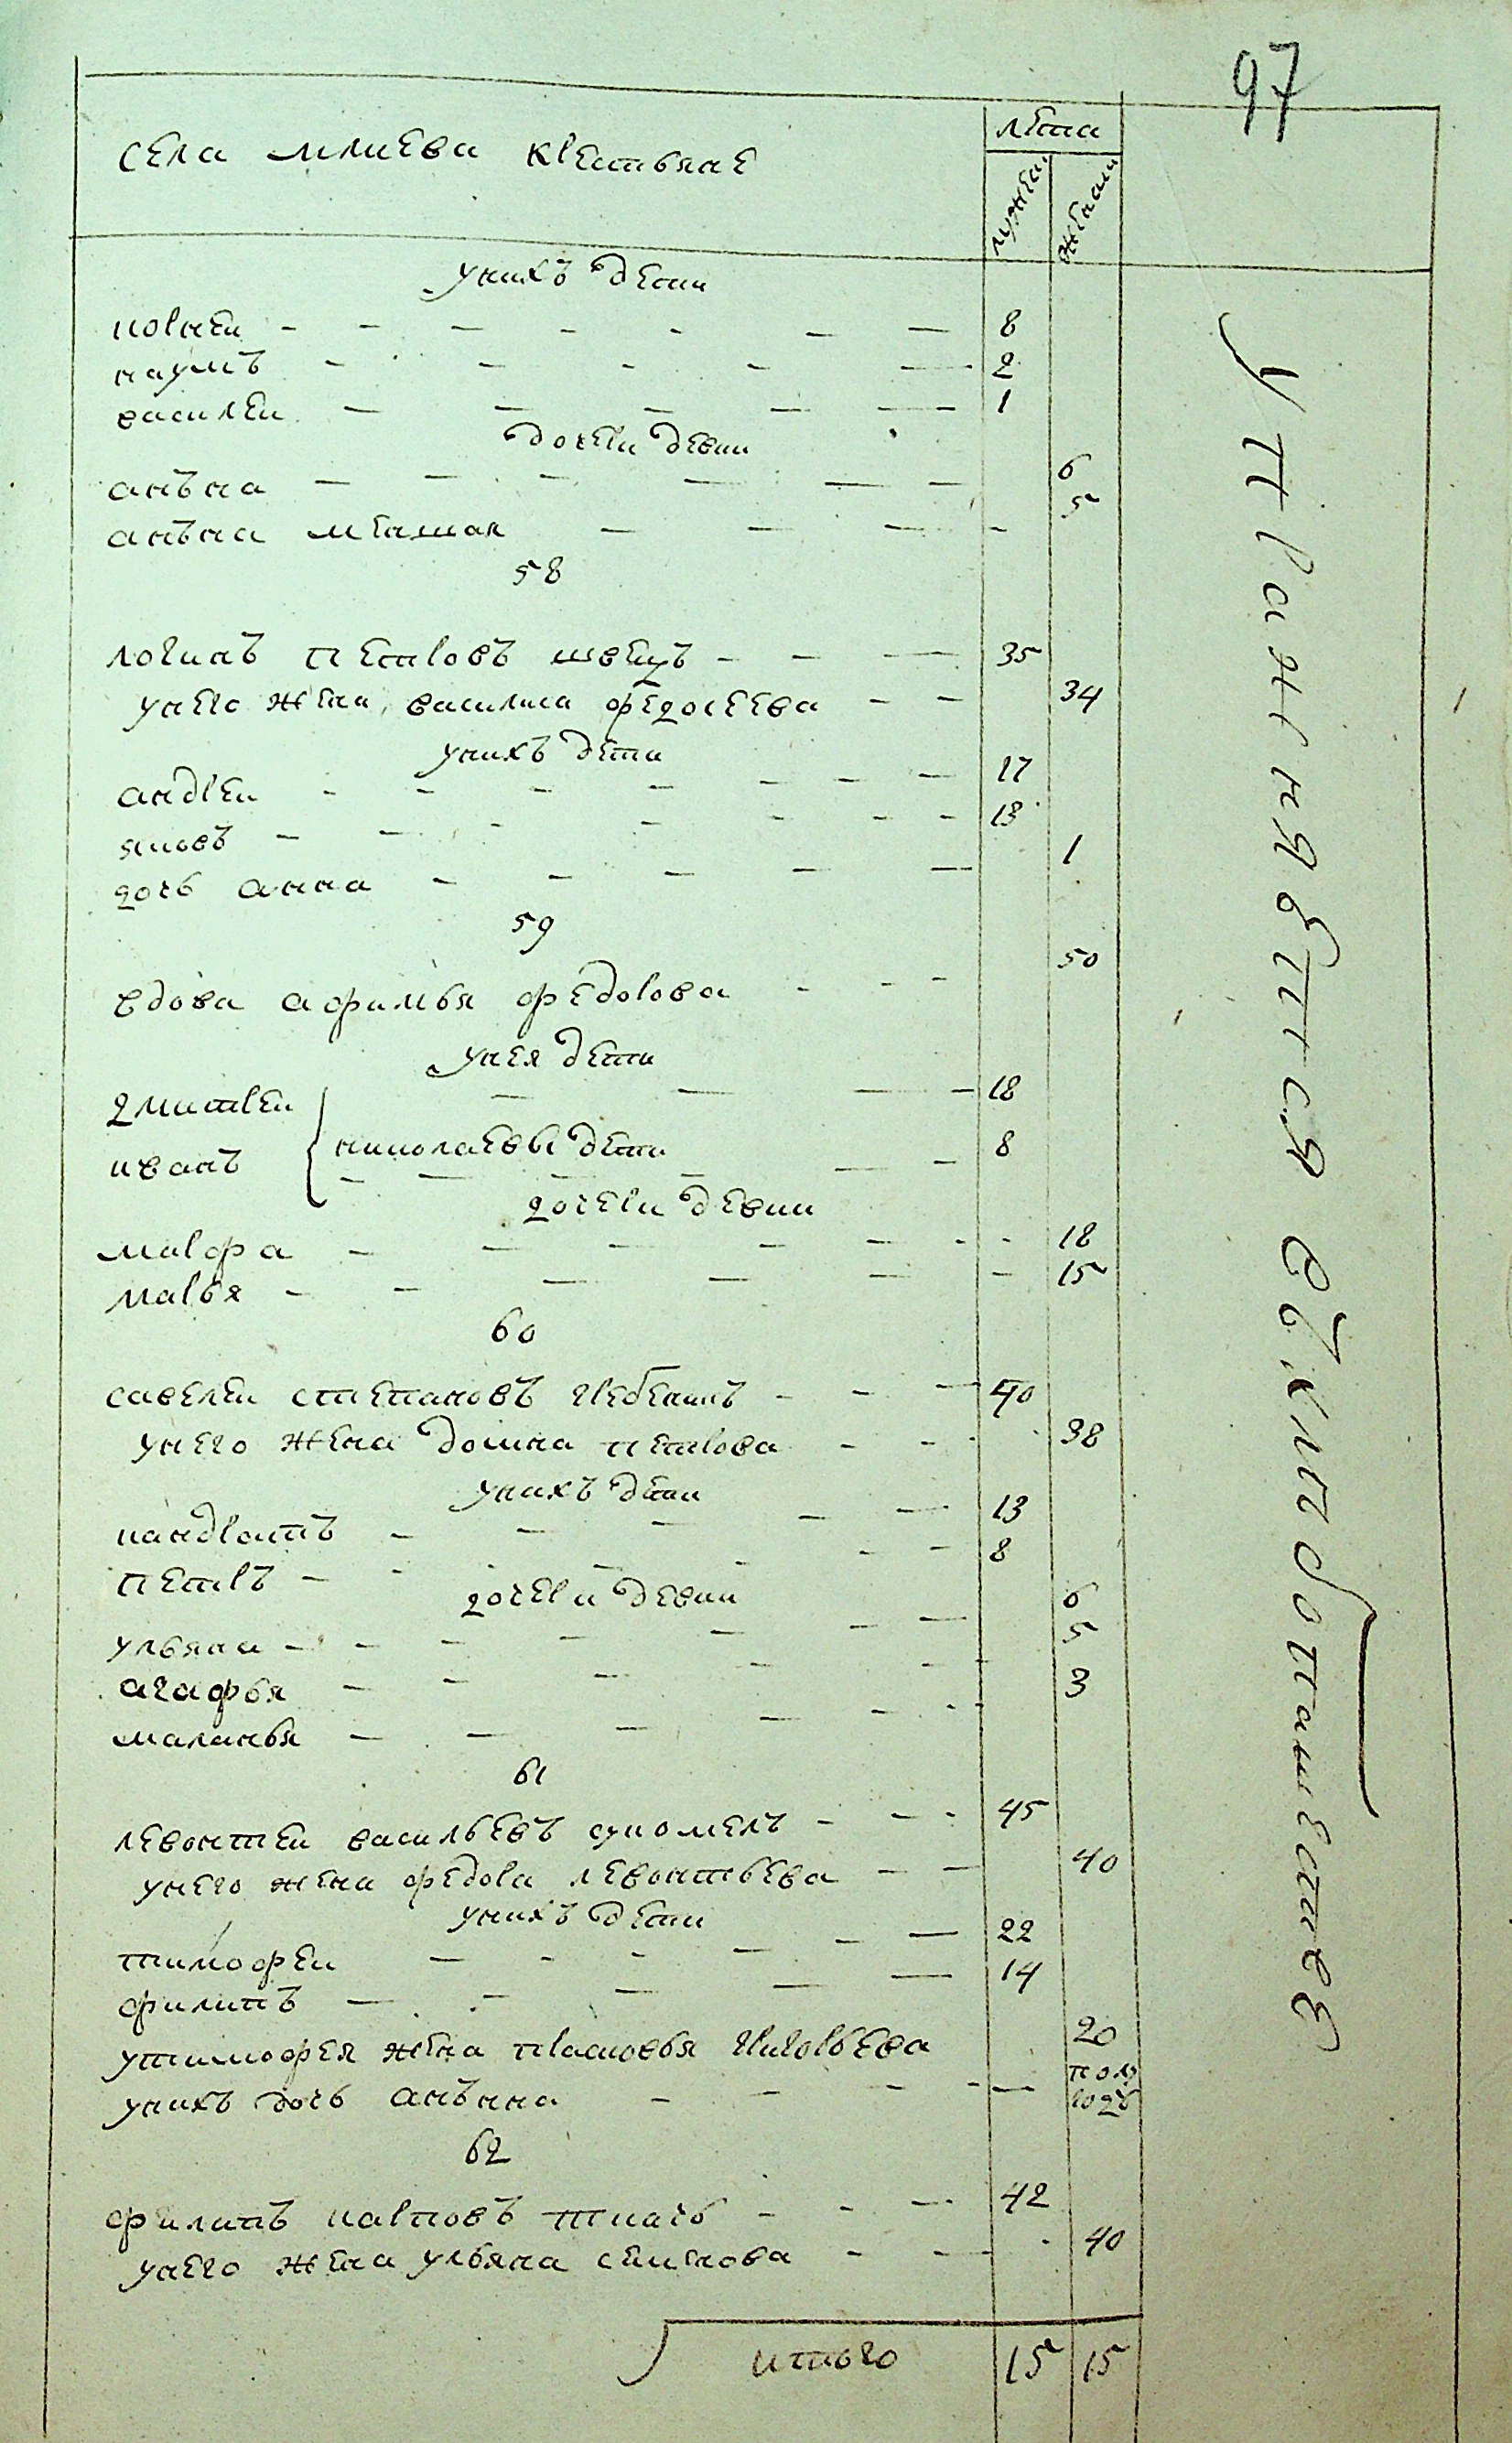 97
села млиева крестьяне
лета
мужеи.
женили
у нихъ дети
корнеи 8
наумъ 2
василеи 1
дочери девки
анъна 6
анъна меншая 5
58
логинъ петровъ швецъ 35
у него жена василиса федосеева 34
у нихъ дети
андреи 17
яковъ 13
дочь анна 1
59
вдова афимья федорова 50
у нея дети
дмитреи 18
николаевы дети
иванъ 8
дочери девки
марфа 18
марья 15
60
савелеи степановъ гребеникъ 40
у него жена домна петрова 38
у нихъ дети
кандратъ 13
петръ 8
дочери девки
ульяна 6
агафья 5
маланья 3
61
левонтеи васильевъ сукомелъ 45
у него жена федора левонтьева 40
у нихъ дети
тимофеи 22
филипъ 14
у тимофея жена прасковья григорьева 20
у нихъ дочь анъна пол годъ
62
филипъ карповъ ткачь 42
у него жена ульяна семенова 40
итого 15 15
упражняетса въ хлибопашестве